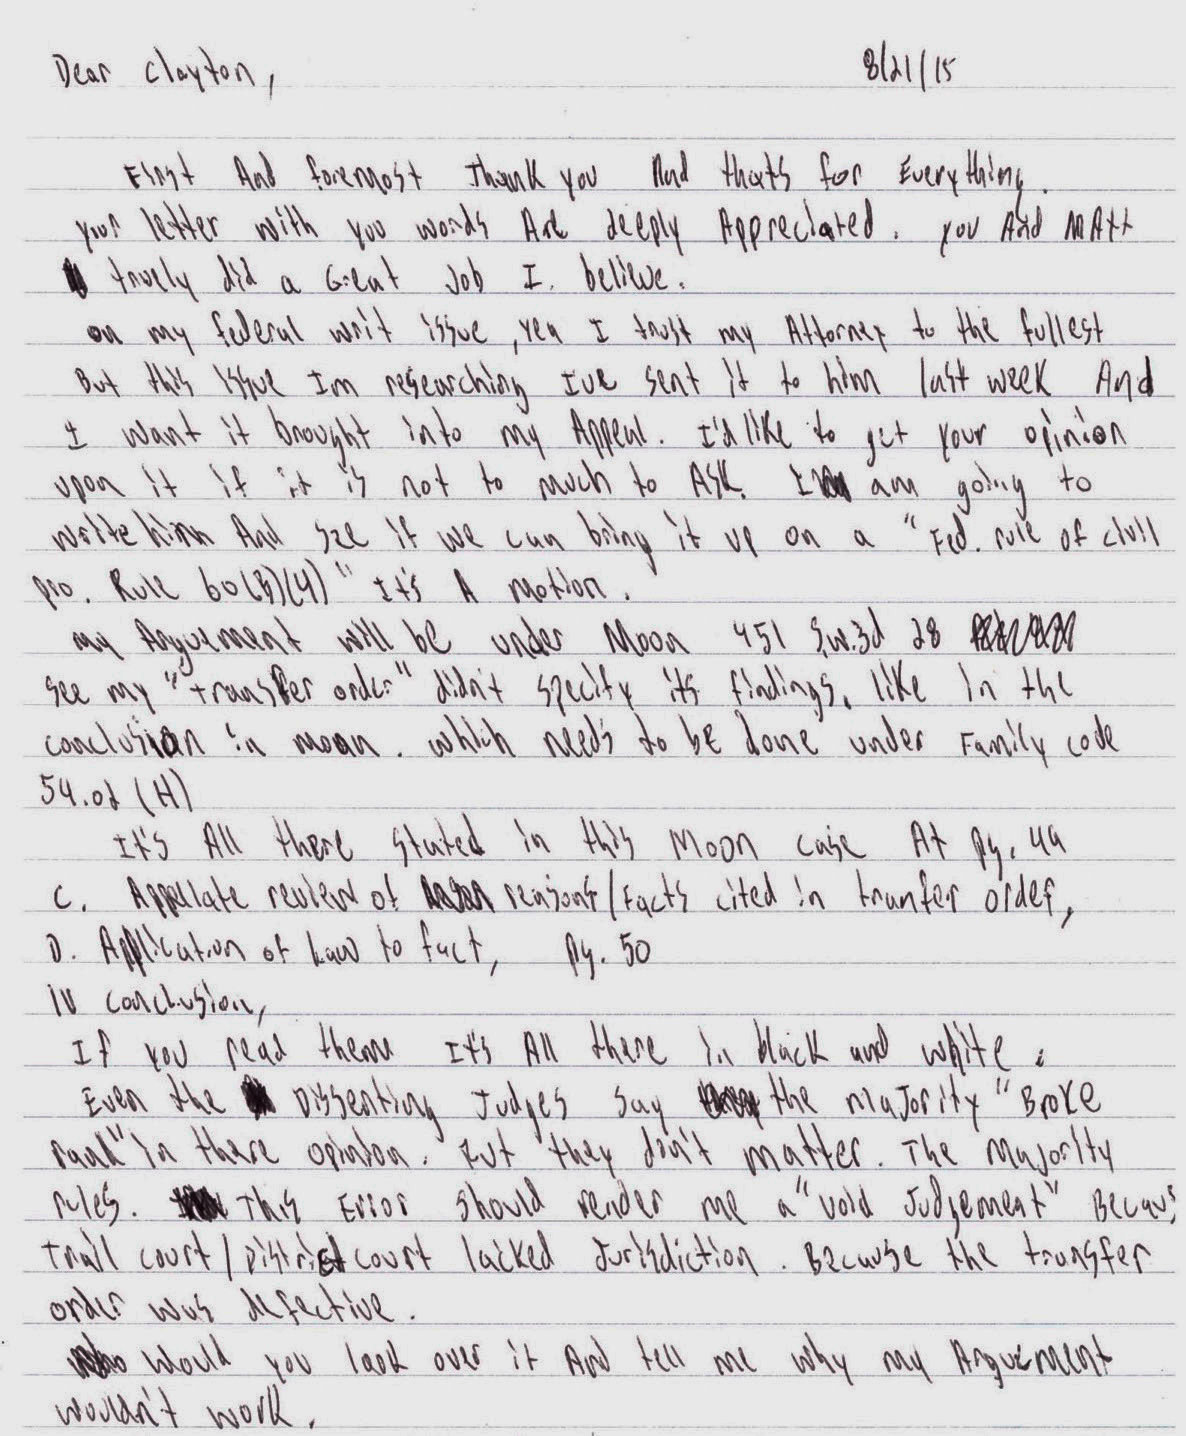 Dear Clayton, 8/21/15
First And foremost Thank you And thats for Everything.
your letter with you words Are deeply Appreciated. you And MAtt
truely did a Great Job I. believe.
on my federal writ issue, yea I trust my Attorney to the fullest
But this issue Im researching Ive sent it to him last week And
I want it brought into my Appeal. I'd like to get your opinion
upon it if it is not to much to ASK. I am going to
write him And see if we can bring it up on a "Fed. rule of civil
pro. Rule 60(B)(4)" It's A motion.
my Arguement will be under Moon 451 S.w.3d 28
see my "transfer order" didn't specify its findings, like in the
conclusion in moon. which needs to be done under Family code
54.02 (H)
It's All there stated in this Moon case At pg. 49
C. Appellate review of reasons/facts cited in tranfer order,
D. Application of Law to fact, pg. 50
IV conclusion,
If you read them It's All there in black and white.
Even the Dissenting Judges say the majority "Broke
rank" in there opinion. But they don't matter. The Majority
rules. This Error should render me a "void Judgement" Becaus
trail court/District court lacked Jurisdiction. Because the transfer
order was defective.
Would you look over it And tell me why my Arguement
wouldn't work.